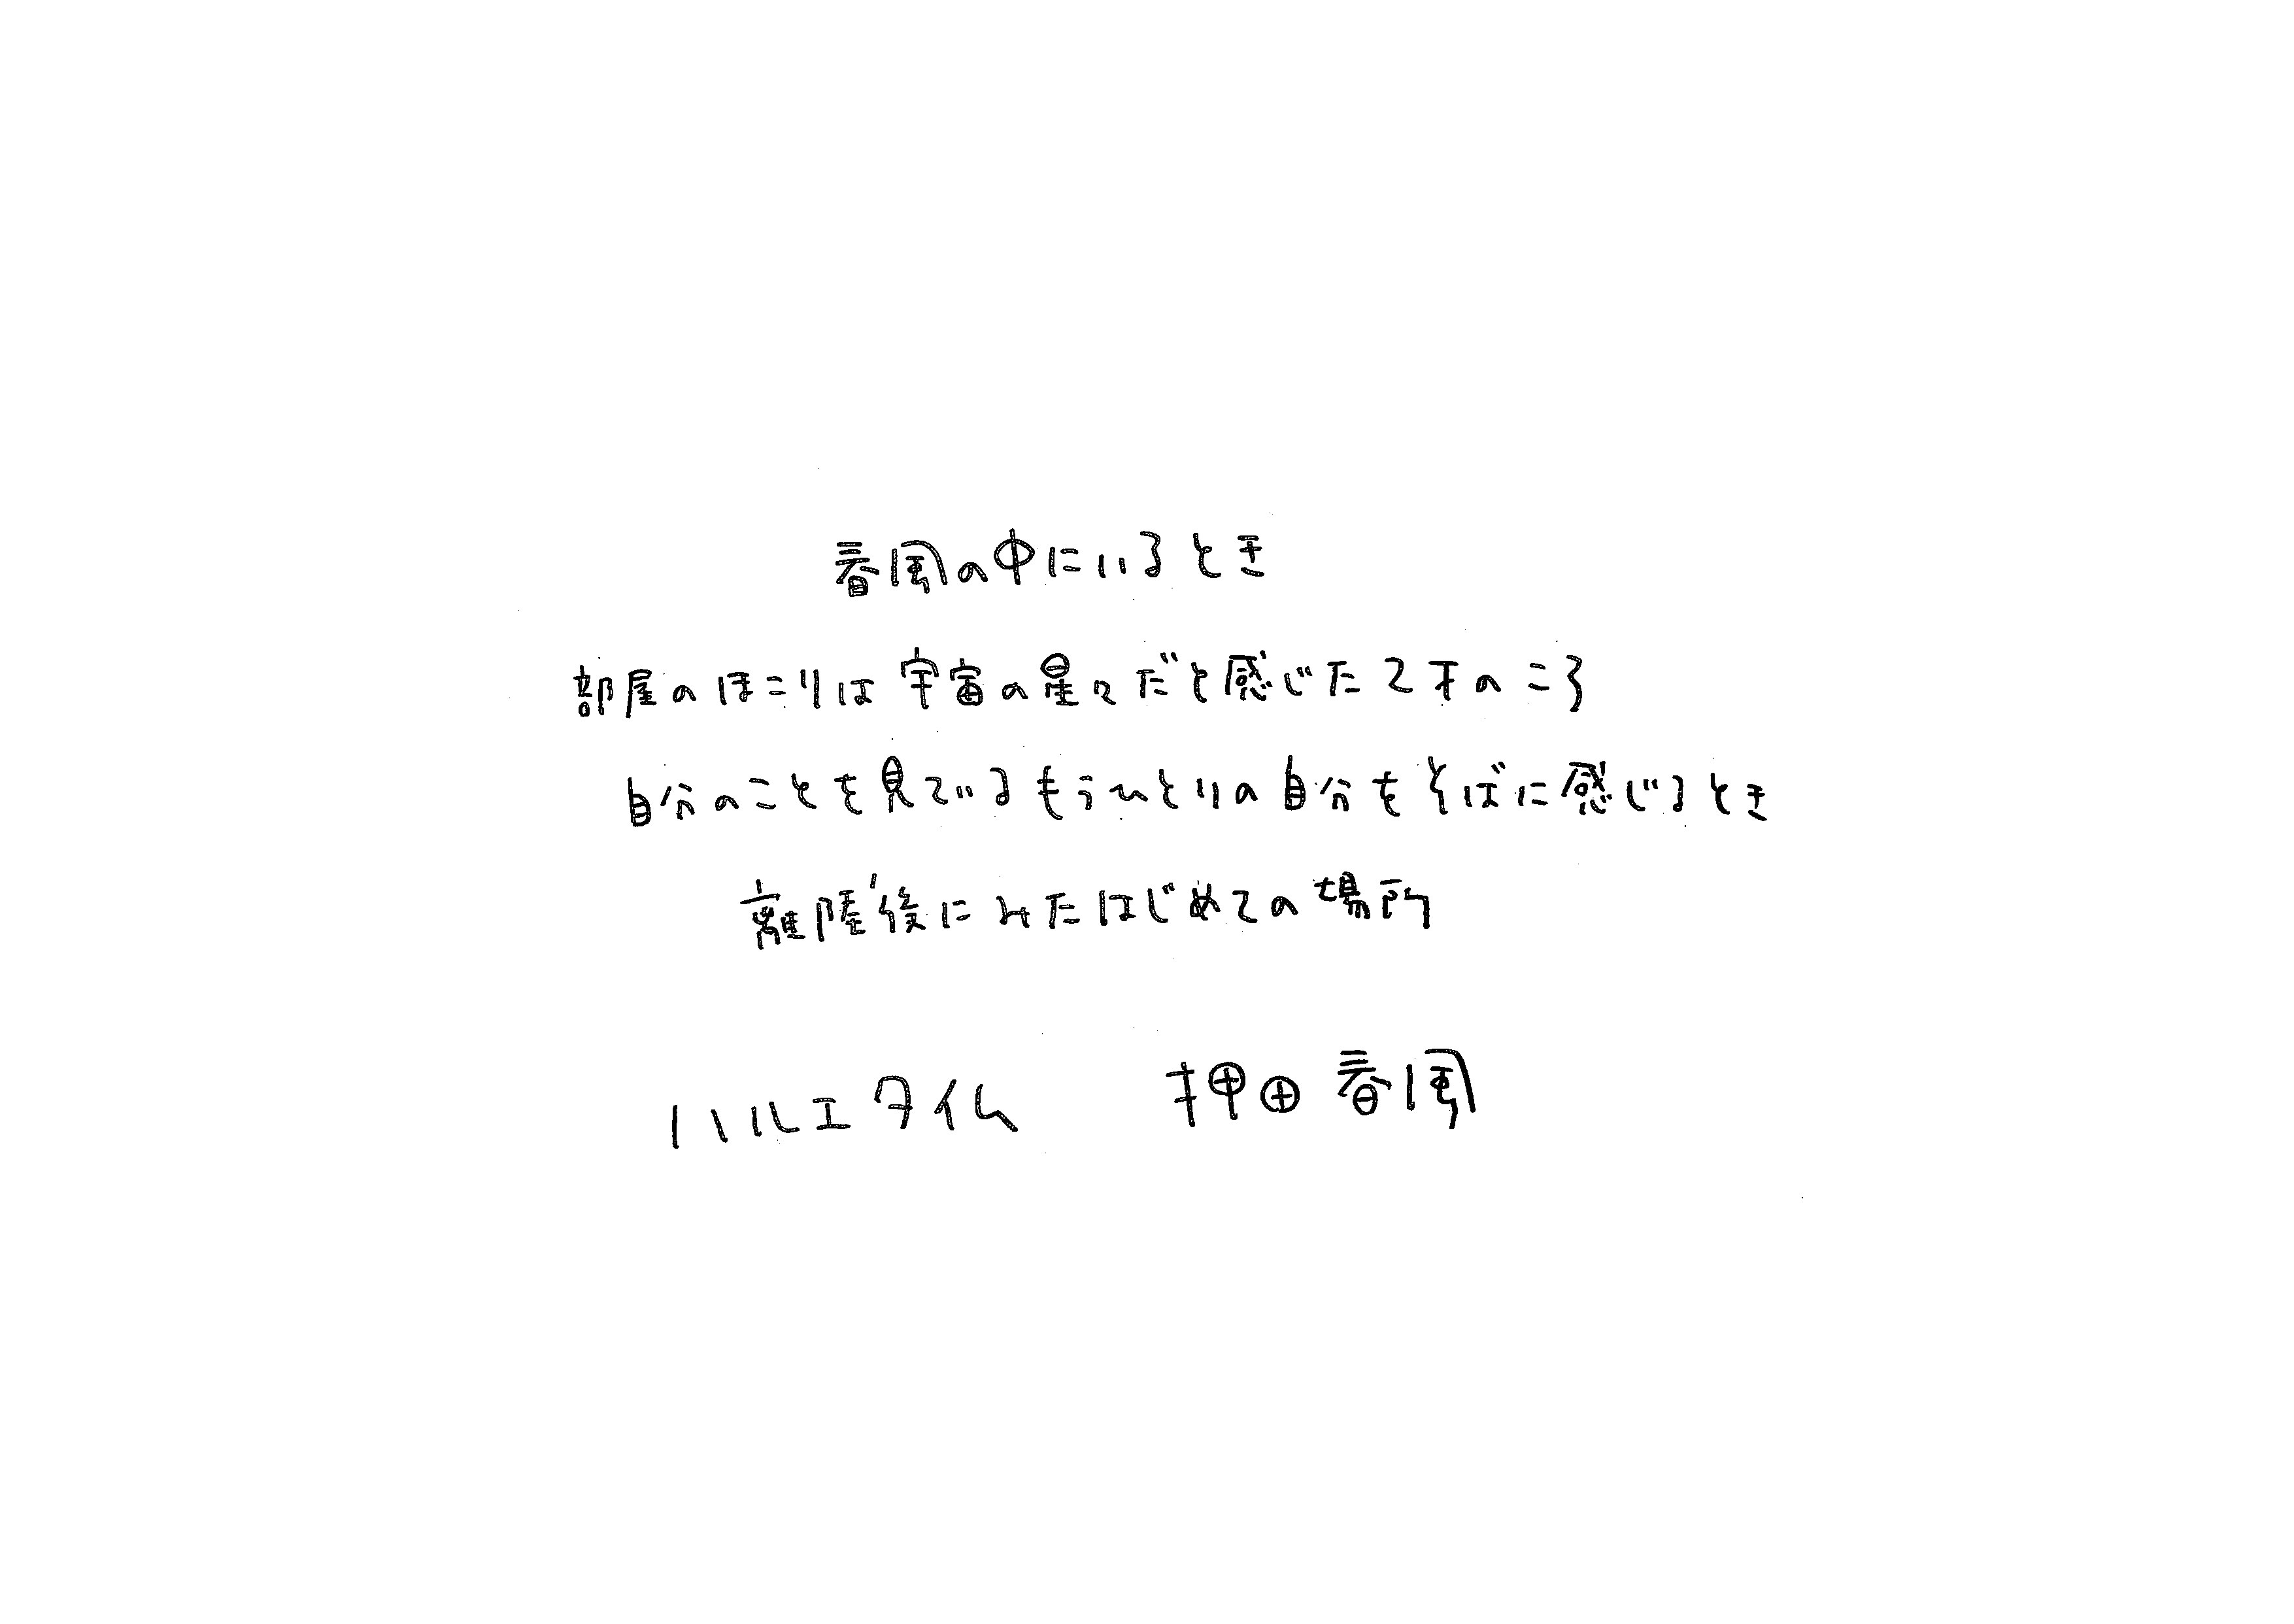 春風の中にいるとき
部屋のほこりは宇宙の星々だと感じた2才のころ
自分のことを見ているもうひとりの自分をそばに感じるとき
離陸後にみたはじめての場所
ハルエタイム 押田春風